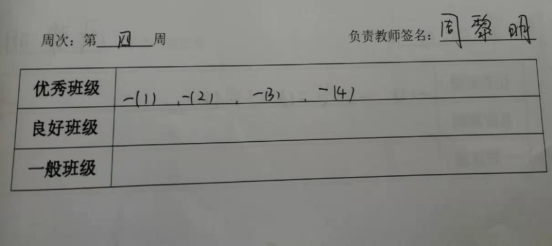 周次：第四周 负责教师签名：周黎明
优秀班级 一(1)、一(2)、一(3)、一(4)
良好班级
一般班级